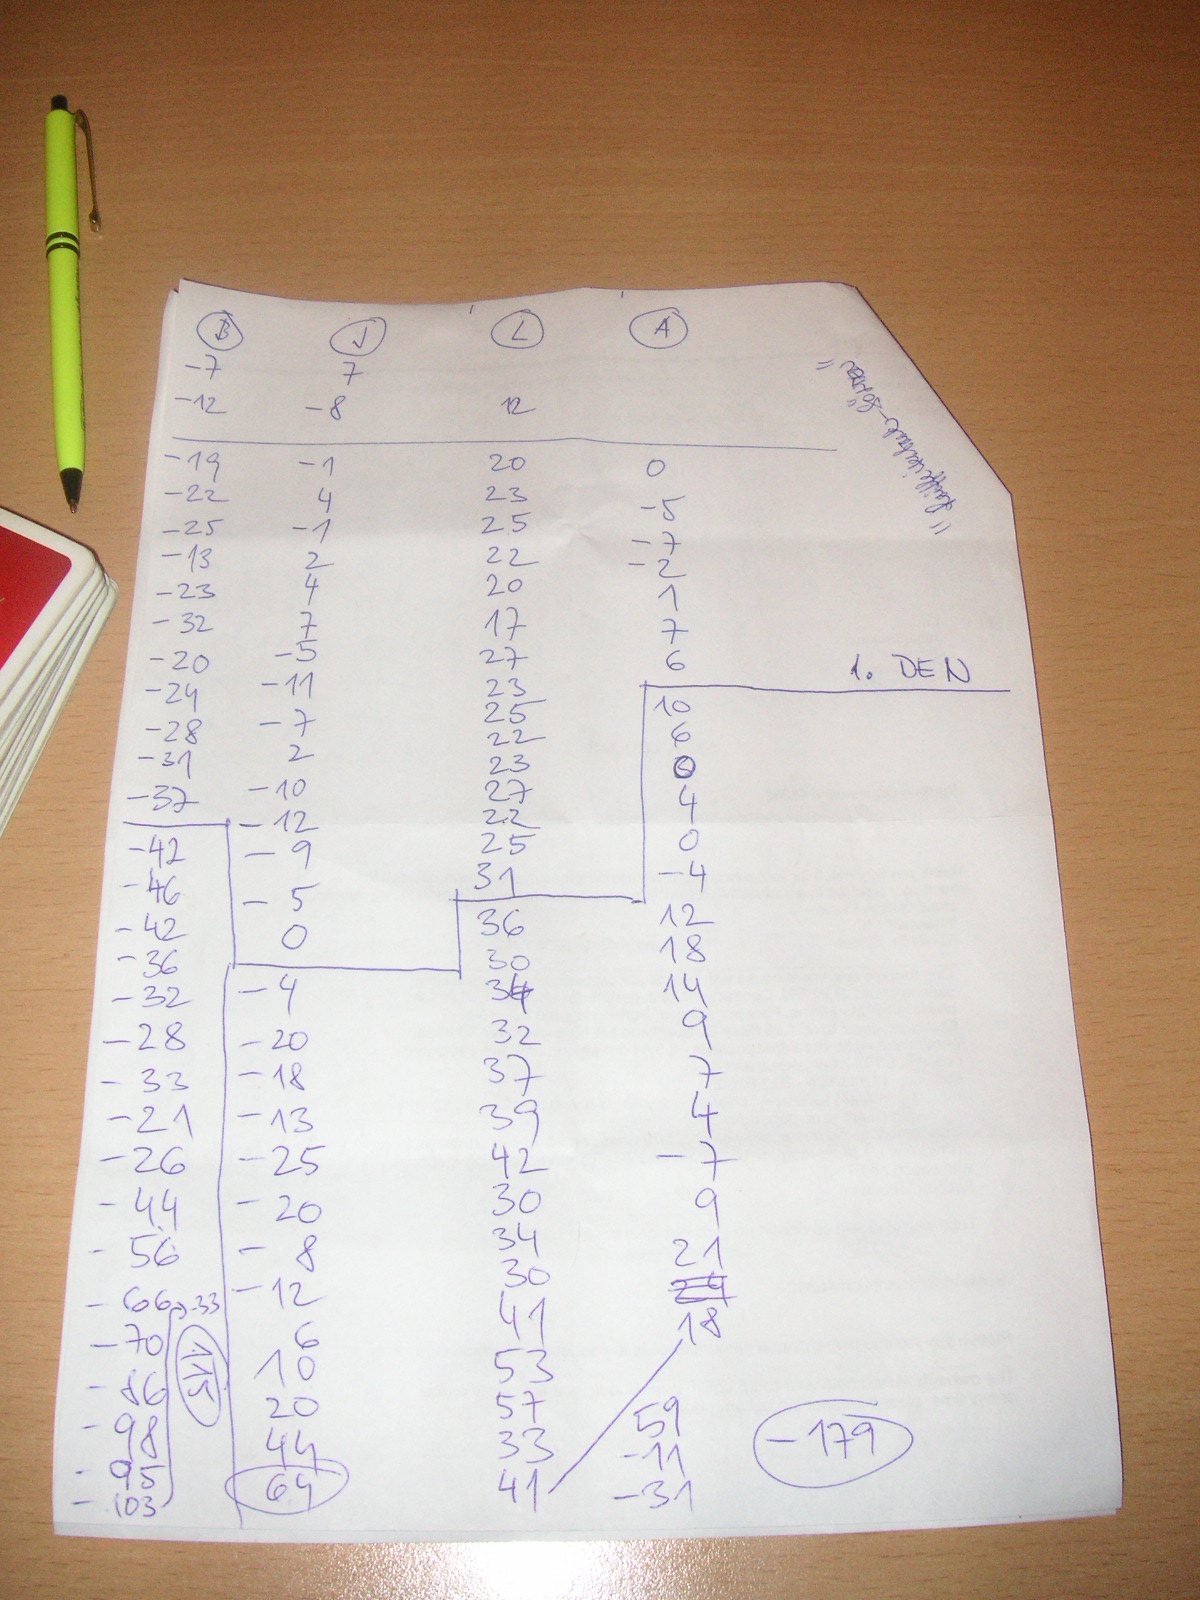 B J L A
-7 7
-12 -8 12
-19 -1 20 0
-22 4 23 -5
-25 -1 25 -7
-13 2 22 -2
-23 4 20 1
-32 7 17 7
-20 -5 27 6
1. DEN
-24 -11 23 10
-28 -7 25 6
-31 2 22 0
-37 -10 23 4
-42 -12 27 0
-46 -9 22 -4
-42 -5 25 12
-36 0 31 18
-32 -4 36 14
-28 -20 30 9
-33 -18 34 7
-21 -13 32 4
-26 -25 37 -7
-44 -20 39 9
-56 -8 42 21
-66 -33 -12 30 24
-70 6 34 18
-86 10 30
-98 20 41
-95 44 53
-103 64 57
115 33 59
41 -11
-31
-179